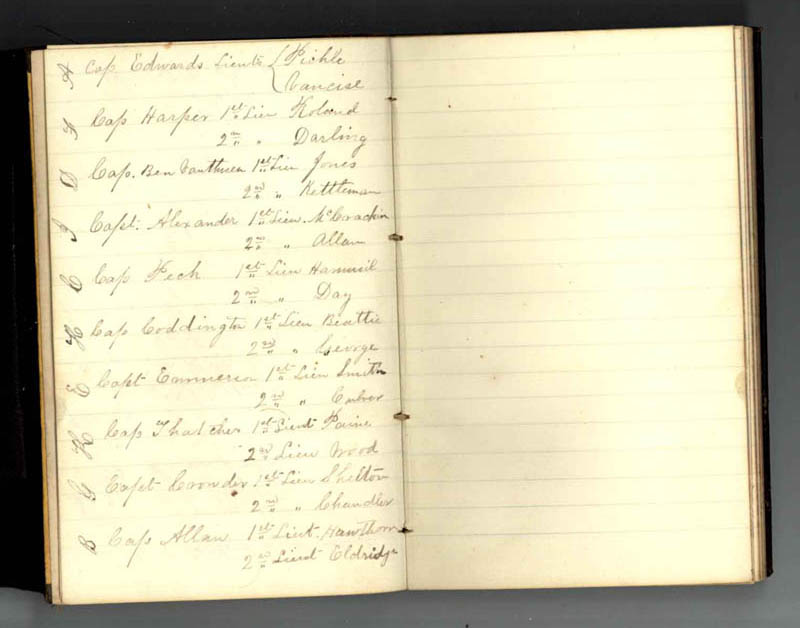 A Cap Edwards Lieuts { Pickle
Vancise
F Cap Harper 1st Lien Roland
2nd " Darling
D Cap. Ben Vanthuen 1st Lien Jones
2nd " Kettleman
I Capt. Alexander 1st Lieu. McCrackin
2nd " Allan
C Cap Peck 1st Lien Hammil
2nd " Day
H Cap Coddington 1st Lien Beattie
2nd " George
E Capt Emmerson 1st Lien Smith
2nd " Culver
K Cap Thatcher 1st Lieut Paine
2nd Lieu Wood
G Capt Crowder 1st Lien Shelton
2nd " Chandler
B Cap Allan 1st Lieut. Hawthorn
2nd Lieut Eldridge